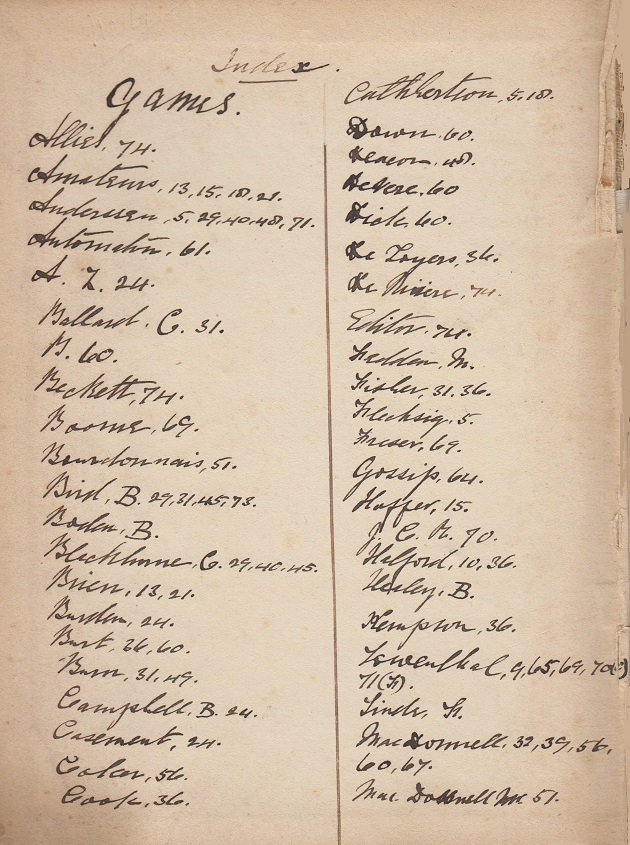 Index.
Games.
Allies, 74.
Amateurs, 13, 15, 18, 21.
Anderssen, 5, 29, 40, 48, 71.
Automaton, 61.
A. Z. 24.
Ballard. C. 31.
B. 60.
Beckett, 74.
Boorne, 69.
Bourdonnais, 51.
Bird, B. 29, 31, 45, 73.
Boden, B.
Blackburne, C. 29, 40, 45.
Brien, 13, 21.
Burden, 24.
Burt, 26, 60.
Burn, 31, 49.
Campbell, B. 24.
Casement, 24.
Coker, 56.
Cook, 36.
Cathbertson, 5, 18.
Dawn. 60.
Deacon. 48.
DeVere. 60
Dick, 60.
De Loyers, 36.
De Riviere, 74.
Editor. 74.
Fedden, M.
Fisher, 31, 36.
Flechsig, 5.
Fraser, 69.
Gossip, 64.
Hoffer, 15.
J. C. R. 70.
Halford, 10, 36.
Healey, B.
Kempson, 36.
Lowenthal, 9, 65, 69, 70
71(F).
Linde,
MacDonnell, 32, 39, 56,
60, 67.
Mac Donnell 51.